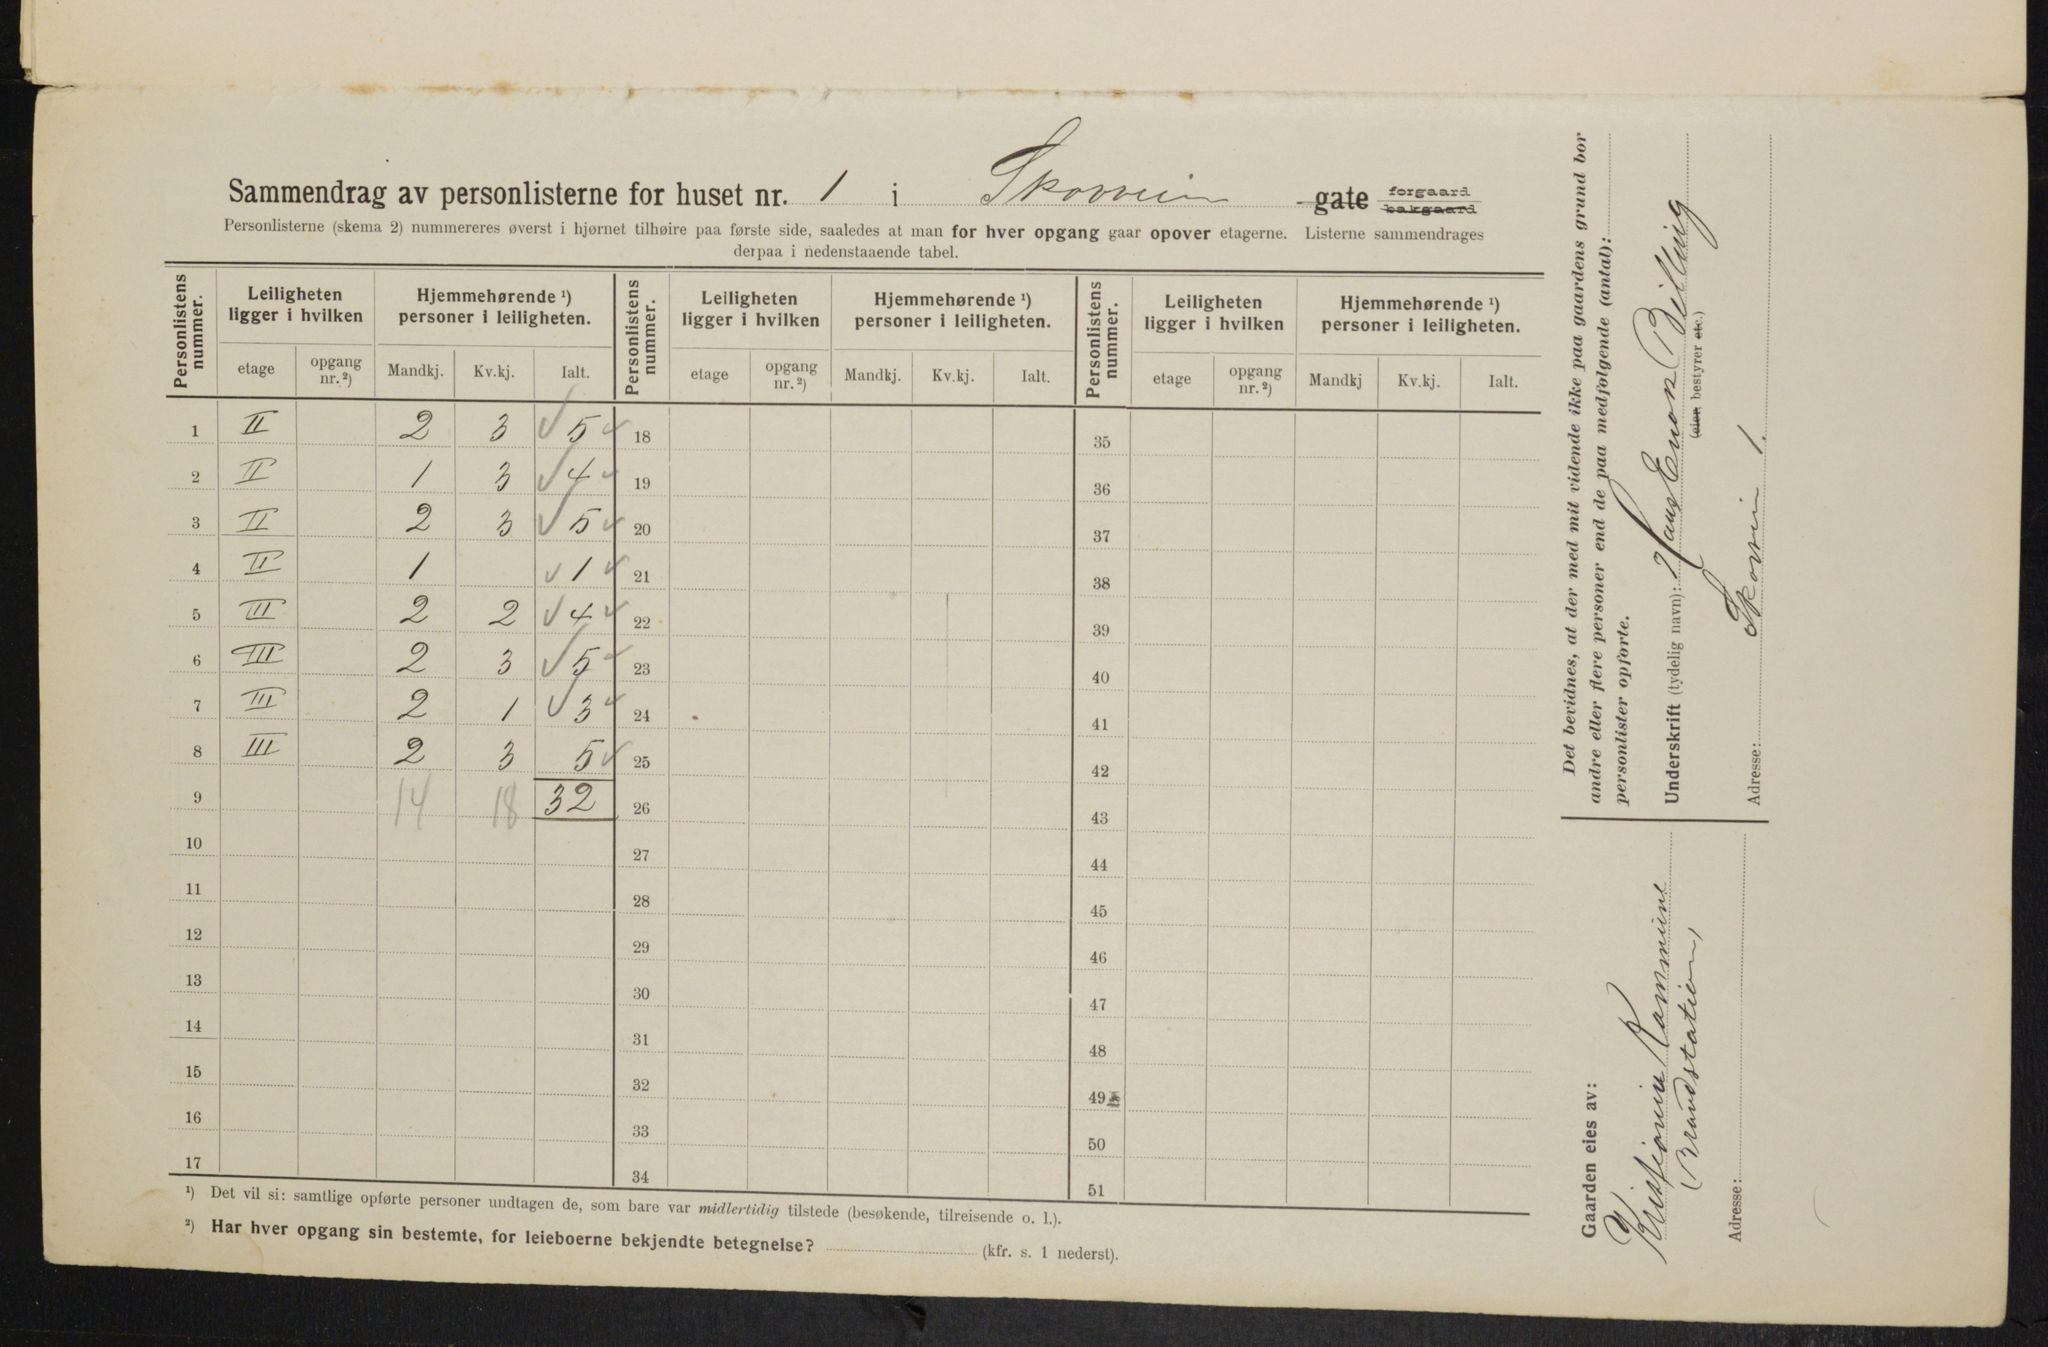 Sammendrag av personlisterne for huset nr. 1 i Skovveien gate forgaard bakgaard
Personlisterne (skema 2) nummereres øverst i hjørnet tilhøire paa første side, saaledes at man for hver opgang gaar opover etagerne. Listerne sammendrages
derpaa i nedenstaaende tabel.
Personlistens nummer. Leiligheten ligger i hvilken Hjemmehørende ¹) personer i leiligheten. Personlistens nummer. Leiligheten ligger i hvilken Hjemmehørende ¹) personer i leiligheten. Personlistens nummer. Leiligheten ligger i hvilken Hjemmehørende ¹) personer i leiligheten.
etage opgang nr. ²) Mandkj. Kv.kj. Ialt. etage opgang nr. ²) Mandkj. Kv.kj. Ialt. etage opgang nr. ²) Mandkj Kv.kj. Ialt.
1 II 2 3 ✓ 5 ✓ 18 35
2 II 1 3 ✓ 4 ✓ 19 36
3 II 2 3 ✓ 5 ✓ 20 37
4 II 1 ✓ 1 ✓ 21 38
5 III 2 2 ✓ 4 ✓ 22 39
6 III 2 3 ✓ 5 ✓ 23 40
7 III 2 1 ✓ 3 ✓ 24 41
8 III 2 3 5 ✓ 25 42
9 14 18 32 26 43
10 27 44
11 28 45
12 29 46
13 30 47
14 31 48
15 32 49
16 33 50
17 34 51
¹) Det vil si: samtlige opførte personer undtagen de, som bare var midlertidig tilstede (besøkende, tilreisende o. l.).
²) Har hver opgang sin bestemte, for leieboerne bekjendte betegnelse? (kfr. s. 1 nederst).
Det bevidnes, at der med mit vidende ikke paa gaardens grund bor
andre eller flere personer end de paa medfølgende (antal):
personlister opførte.
Underskrift (tydelig navn): Hans Enok Billing
(eier, bestyrer etc.)
Adresse: Skovvei 1.
Gaarden eies av:
Kristiania Kommune
Brandstation,
Adresse: